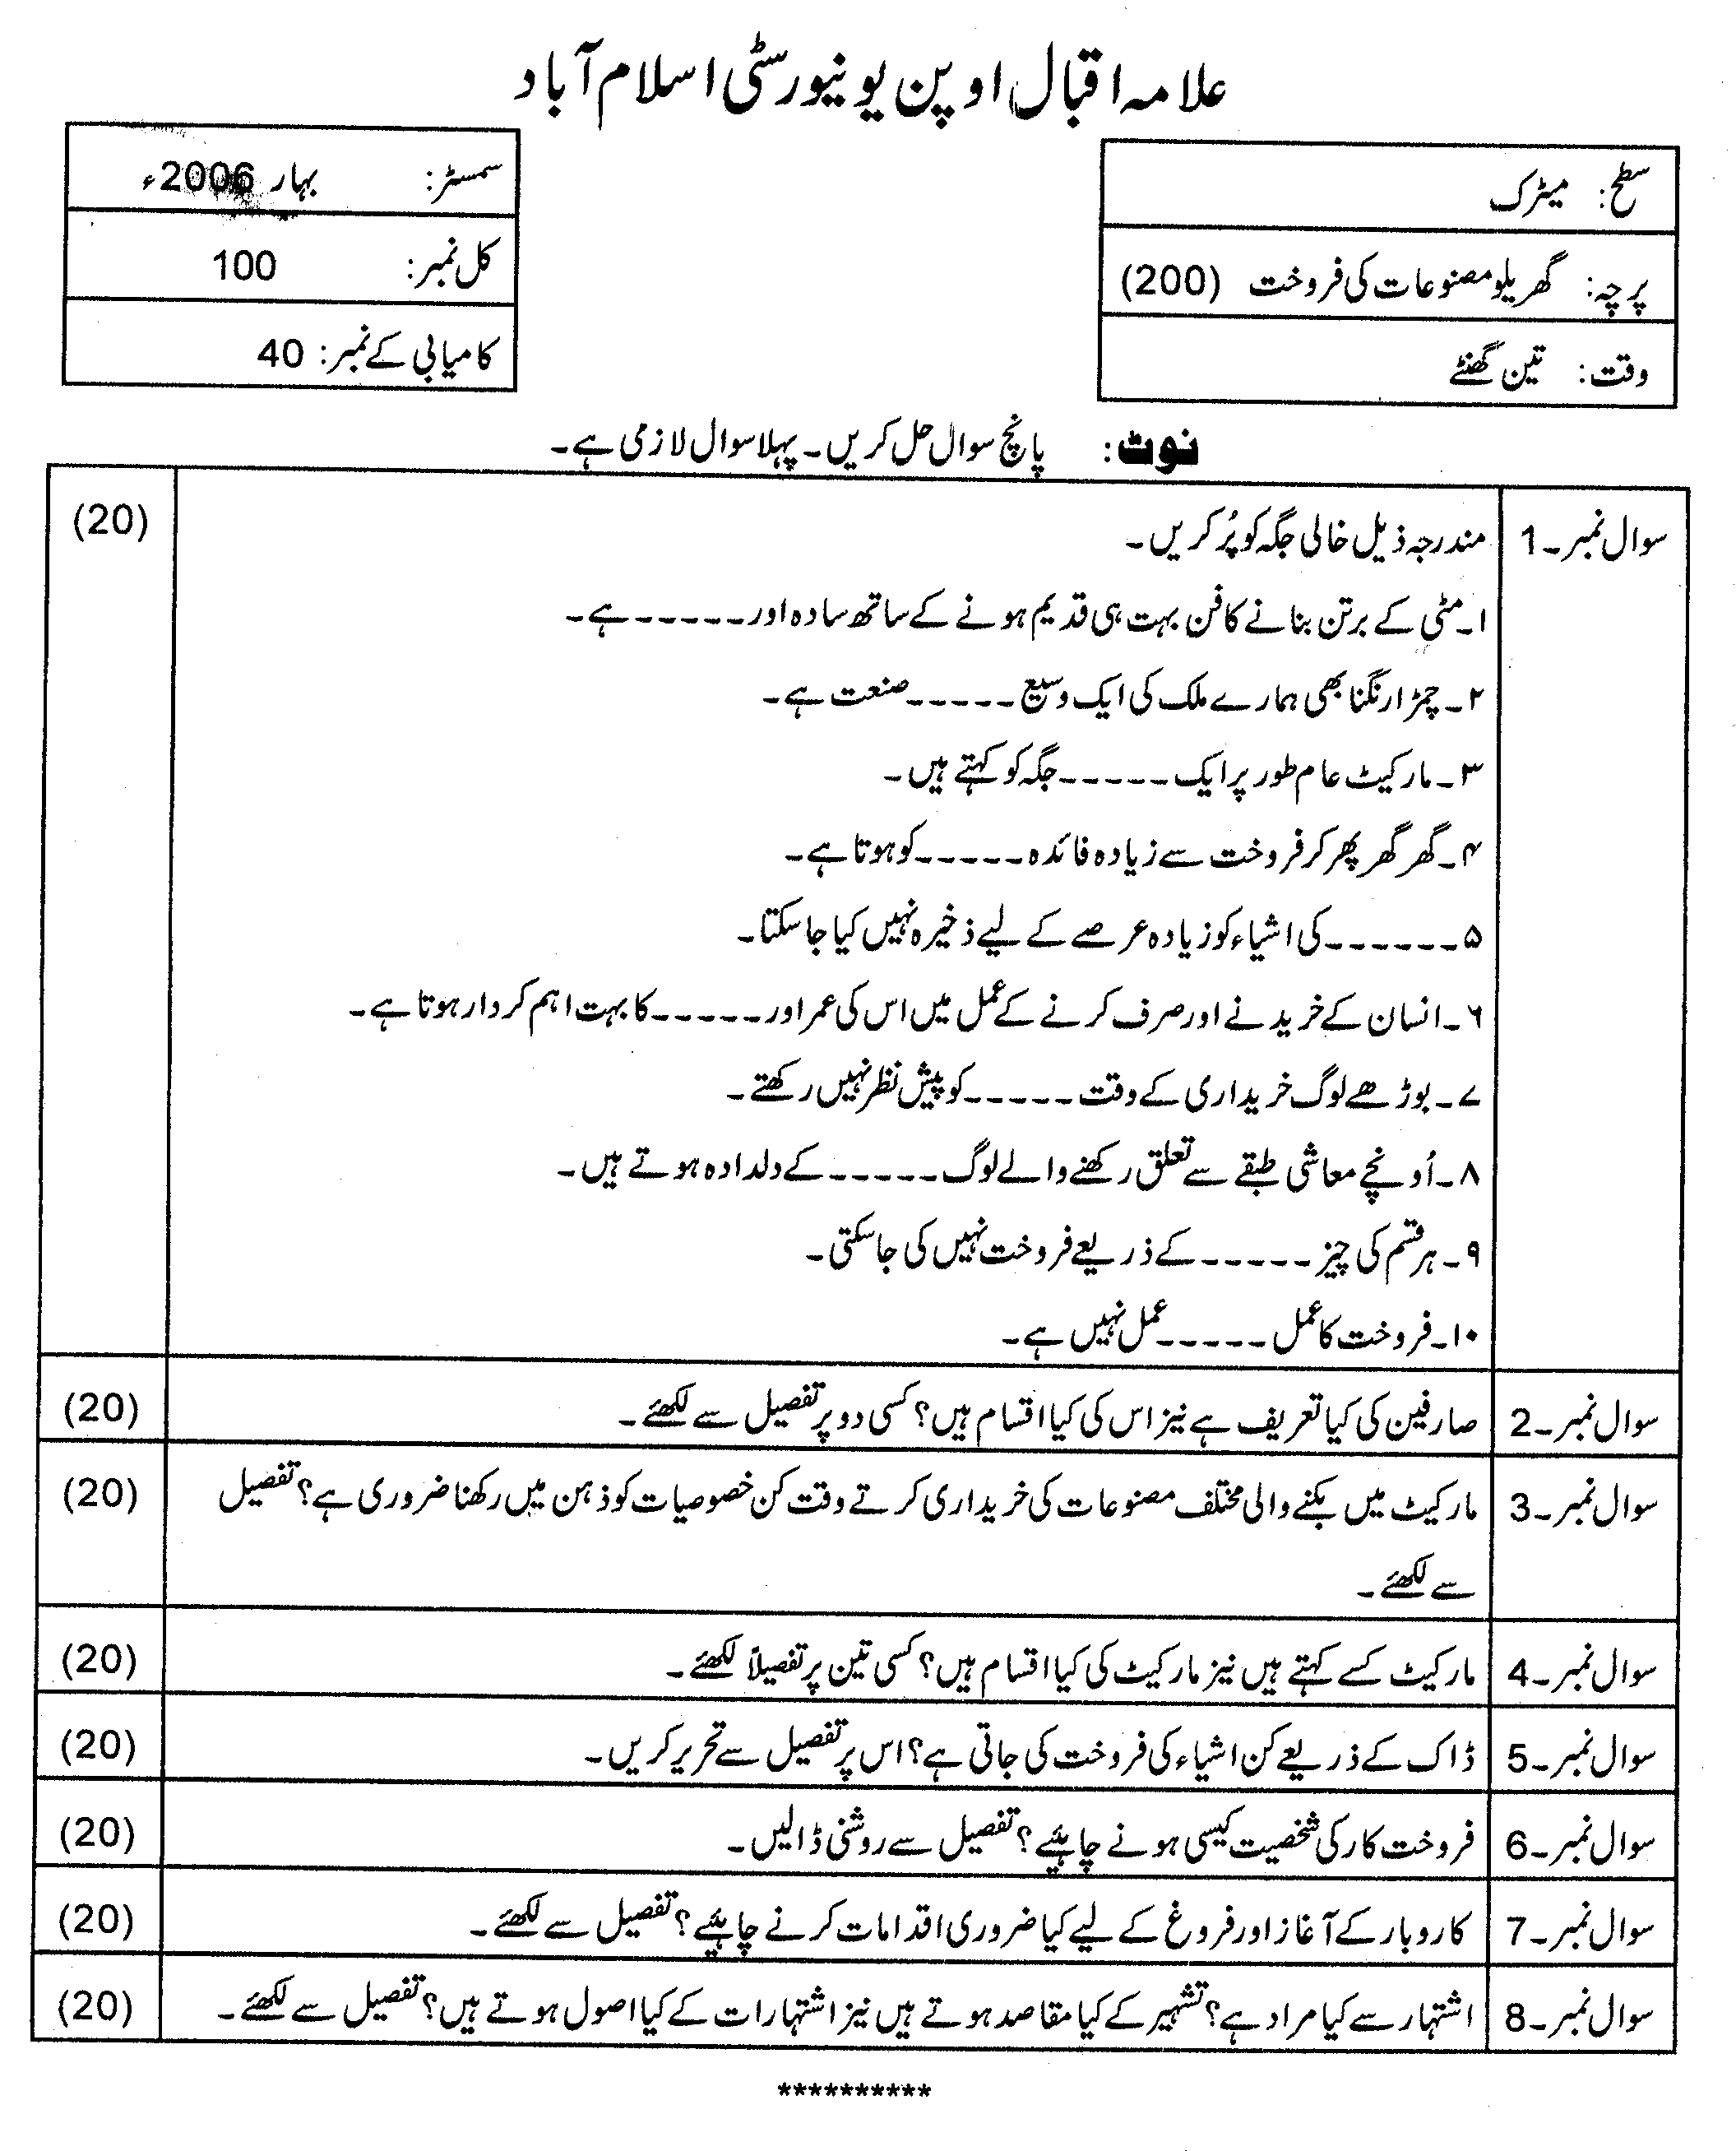 علامہ اقبال اوپن یونیورسٹی اسلام آباد
سطح: میٹرک
پرچہ: گھریلو مصنوعات کی فروخت (200)
وقت: تین گھنٹے
سمسٹر: بہار 2006ء
کل نمبر: 100
کامیابی کے نمبر: 40
نوٹ: پانچ سوال حل کریں۔ پہلا سوال لازمی ہے۔
سوال نمبر۔1 مندرجہ ذیل خالی جگہ کو پُر کریں۔ (20)
۱۔ مٹی کے برتن بنانے کا فن بہت ہی قدیم ہونے کے ساتھ سادہ اور ----- ہے۔
۲۔ چمڑا رنگنا بھی ہمارے ملک کی ایک وسیع ----- صنعت ہے۔
۳۔ مارکیٹ عام طور پر ایک ----- جگہ کو کہتے ہیں۔
۴۔ گھر گھر پھر کر فروخت سے زیادہ فائدہ ----- کو ہوتا ہے۔
۵۔ ----- کی اشیاء کو زیادہ عرصے کے لیے ذخیرہ نہیں کیا جا سکتا۔
۶۔ انسان کے خریدنے اور صرف کرنے کے عمل میں اس کی عمر اور ----- کا بہت اہم کردار ہوتا ہے۔
۷۔ بوڑھے لوگ خریداری کے وقت ----- کو پیش نظر نہیں رکھتے۔
۸۔ اُونچے معاشی طبقے سے تعلق رکھنے والے لوگ ----- کے دلدادہ ہوتے ہیں۔
۹۔ ہر قسم کی چیز ----- کے ذریعے فروخت نہیں کی جا سکتی۔
۱۰۔ فروخت کا عمل ----- عمل نہیں ہے۔
سوال نمبر۔2 صارفین کی کیا تعریف ہے نیز اس کی کیا اقسام ہیں؟ کسی دو پر تفصیل سے لکھئے۔ (20)
سوال نمبر۔3 مارکیٹ میں بکنے والی مختلف مصنوعات کی خریداری کرتے وقت کن خصوصیات کو ذہن میں رکھنا ضروری ہے؟ تفصیل (20)
سے لکھئے۔
سوال نمبر۔4 مارکیٹ کسے کہتے ہیں نیز مارکیٹ کی کیا اقسام ہیں؟ کسی تین پر تفصیلاً لکھئے۔ (20)
سوال نمبر۔5 ڈاک کے ذریعے کن اشیاء کی فروخت کی جاتی ہے؟ اس پر تفصیل سے تحریر کریں۔ (20)
سوال نمبر۔6 فروخت کار کی شخصیت کیسی ہونے چاہئیے؟ تفصیل سے روشنی ڈالیں۔ (20)
سوال نمبر۔7 کاروبار کے آغاز اور فروغ کے لیے کیا ضروری اقدامات کرنے چاہئیے؟ تفصیل سے لکھئے۔ (20)
سوال نمبر۔8 اشتہار سے کیا مراد ہے؟ تشہیر کے کیا مقاصد ہوتے ہیں نیز اشتہارات کے کیا اصول ہوتے ہیں؟ تفصیل سے لکھئے۔ (20)
**********